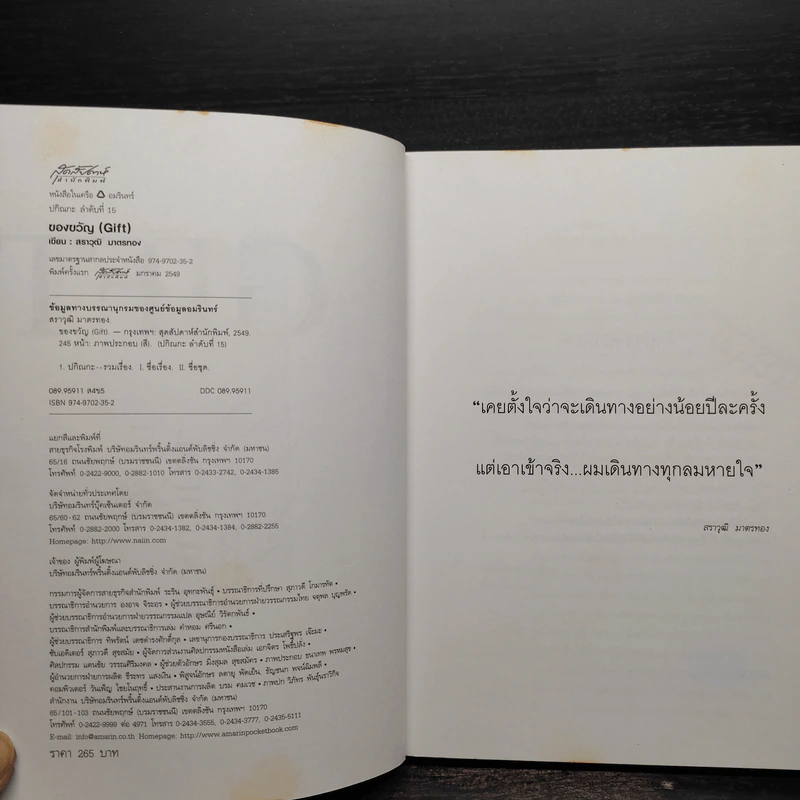 สุดสัปดาห์
สำนักพิมพ์
หนังสือในเครือ อมรินทร์
ปกิณกะ ลำดับที่ 15
ของขวัญ (Gift)
เขียน : สราวุฒิ มาตรทอง
เลขมาตรฐานสากลประจำหนังสือ 974-9702-35-2
พิมพ์ครั้งแรก สุดสัปดาห์ สำนักพิมพ์ มกราคม 2549
ข้อมูลทางบรรณานุกรมของศูนย์ข้อมูลอมรินทร์
สราวุฒิ มาตรทอง.
ของขวัญ (Gift). — กรุงเทพฯ: สุดสัปดาห์สำนักพิมพ์, 2549.
245 หน้า: ภาพประกอบ (สี). (ปกิณกะ ลำดับที่ 15)
1. ปกิณกะ--รวมเรื่อง. I. ชื่อเรื่อง. II. ชื่อชุด.
089.95911 ส4ข5 DDC 089.95911
ISBN 974-9702-35-2
แยกสีและพิมพ์ที่
สายธุรกิจโรงพิมพ์ บริษัทอมรินทร์พริ้นติ้งแอนด์พับลิชชิ่ง จำกัด (มหาชน)
65/16 ถนนชัยพฤกษ์ (บรมราชชนนี) เขตตลิ่งชัน กรุงเทพฯ 10170
โทรศัพท์ 0-2422-9000, 0-2882-1010 โทรสาร 0-2433-2742, 0-2434-1385
จัดจำหน่ายทั่วประเทศโดย
บริษัทอมรินทร์บุ๊คเซ็นเตอร์ จำกัด
65/60-62 ถนนชัยพฤกษ์ (บรมราชชนนี) เขตตลิ่งชัน กรุงเทพฯ 10170
โทรศัพท์ 0-2882-2000 โทรสาร 0-2434-1382, 0-2434-1384, 0-2882-2255
Homepage: http://www.naiin.com
เจ้าของ ผู้พิมพ์ผู้โฆษณา
บริษัทอมรินทร์พริ้นติ้งแอนด์พับลิชชิ่ง จำกัด (มหาชน)
กรรมการผู้จัดการสายธุรกิจสำนักพิมพ์ ระริน อุทกะพันธุ์ • บรรณาธิการที่ปรึกษา สุภาวดี โกมารทัต •
บรรณาธิการอำนวยการ องอาจ จิระอร • ผู้ช่วยบรรณาธิการอำนวยการฝ่ายวรรณกรรมไทย จตุพล บุญพรัด •
ผู้ช่วยบรรณาธิการอำนวยการฝ่ายวรรณกรรมแปล อุษณีย์ วิรัตกพันธ์ •
บรรณาธิการสำนักพิมพ์และบรรณาธิการเล่ม คำหอม ศรีนอก •
ผู้ช่วยบรรณาธิการ ทิพรัตน์ เดชดำรงศักดิ์กุล • เลขานุการกองบรรณาธิการ ประเสริฐพร เจ๊ะมะ •
ซับเอดิเตอร์ สุภาวดี สุขสมัย • ผู้จัดการส่วนงานศิลปกรรมหนังสือเล่ม เอกจิตร โพธิ์ปลั่ง •
ศิลปกรรม แคนชัย วรรณศิริมงคล • ผู้ช่วยตัวอักษร มิ่งสุมล สุขสมัคร • ภาพประกอบ ธนาเทพ พรหมสุข •
ผู้อำนวยการฝ่ายการผลิต ธีระพร แสงเงิน • พิสูจน์อักษร ลดายุ พัดเย็น, ธัญชนก พจน์ฉิมพลี •
คอมพิวเตอร์ วันเพ็ญ ไชยในฤทธิ์ • ประสานงานการผลิต บรม คมเวช • ภาพปก วิภัทร พันธุ์นราวิกิจ
สำนักงาน บริษัทอมรินทร์พริ้นติ้งแอนด์พับลิชชิ่ง จำกัด (มหาชน)
65/101-103 ถนนชัยพฤกษ์ (บรมราชชนนี) เขตตลิ่งชัน กรุงเทพฯ 10170
โทรศัพท์ 0-2422-9999 ต่อ 4971 โทรสาร 0-2434-3555, 0-2434-3777, 0-2435-5111
E-mail: info@amarin.co.th Homepage: http://www.amarinpocketbook.com
ราคา 265 บาท
“เคยตั้งใจว่าจะเดินทางอย่างน้อยปีละครั้ง
แต่เอาเข้าจริง...ผมเดินทางทุกลมหายใจ”
สราวุฒิ มาตรทอง